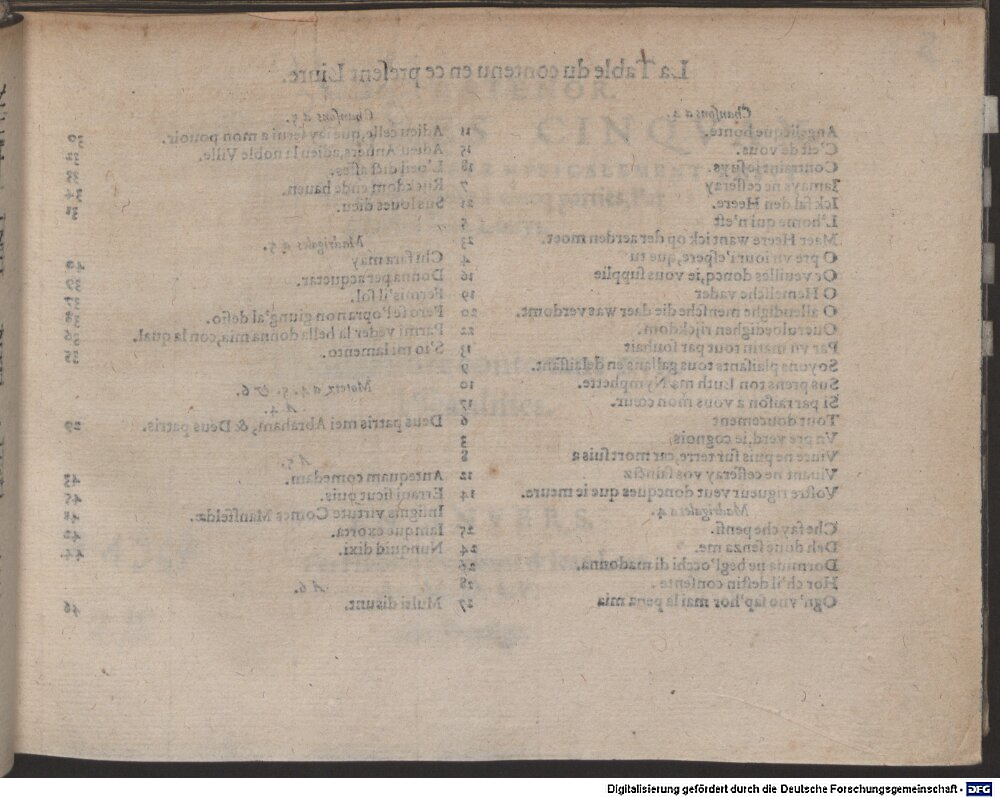 La Table du contenu en ce present Liure.
Chansons a 4.
Angelicque bonte. 11
C'est de vous. 15
Contraint je suys. 18
Iamays ne cesseray 7
Ick sal den Heere. 21
L'home qui n'est 5
Maer Heere want ick op der aerden moet. 23
O pre vn iour i'espere, que tu 4
Or veuilles doncq, ie vous supplie 16
O Hemelische vader 19
O allendighe mensche die daer was verdomt. 20
Ouervloedighen rijckdom. 22
Par vn matin tout par souhait 13
Soyons plaisants tous gallans en desaissant. 9
Sus prens ton Luth ma Nymphette. 10
Si par raison a vous mon cœur. 17
Tout doucement 6
Vn pre verd, ie cognois, 3
Viure ne puis sur terre, car mort suis a 8
Viuant ne cesseray vos sainctz 12
Vostre rigueur veut doncques que ie meure. 14
Madrigales a 4.
Che fay che pensi. 25
Deh doue senza me. 24
Dormiua ne begl'occhi di madonna. 26
Hor ch'il destin consente. 28
Ogn'vno sap'hor mai la pena mia 27
Chansons a 5.
Adieu celle, que i'ay serui a mon pouoir. 30
Adieu Anuers, adieu la noble Ville. 32
L'oeil dict asses. 33
Rijckdom ende hauen. 34
Sus loues dieu. 31
Madrigales a 5.
Chi fara may 40
Donna per acquetar. 39
Fermis'il sol. 37
Pero se l'opra non giung'al desio. 38
Parmi veder la bella donna mia, con la qual. 36
S'io mi lamento. 35
Motetz a 4. 5. & 6.
A 4.
Deus patris mei Abraham, & Deus patris. 29
A 5.
Antequam comedam. 43
Erraui sicut ouis. 45
Insignis virtute Comes Mansfeldæ. 41
Iamque exorta. 42
Nunquid dixi. 44
A 6.
Mulsi disunt. 46
Digitalisierung gefördert durch die Deutsche Forschungsgemeinschaft - DFG